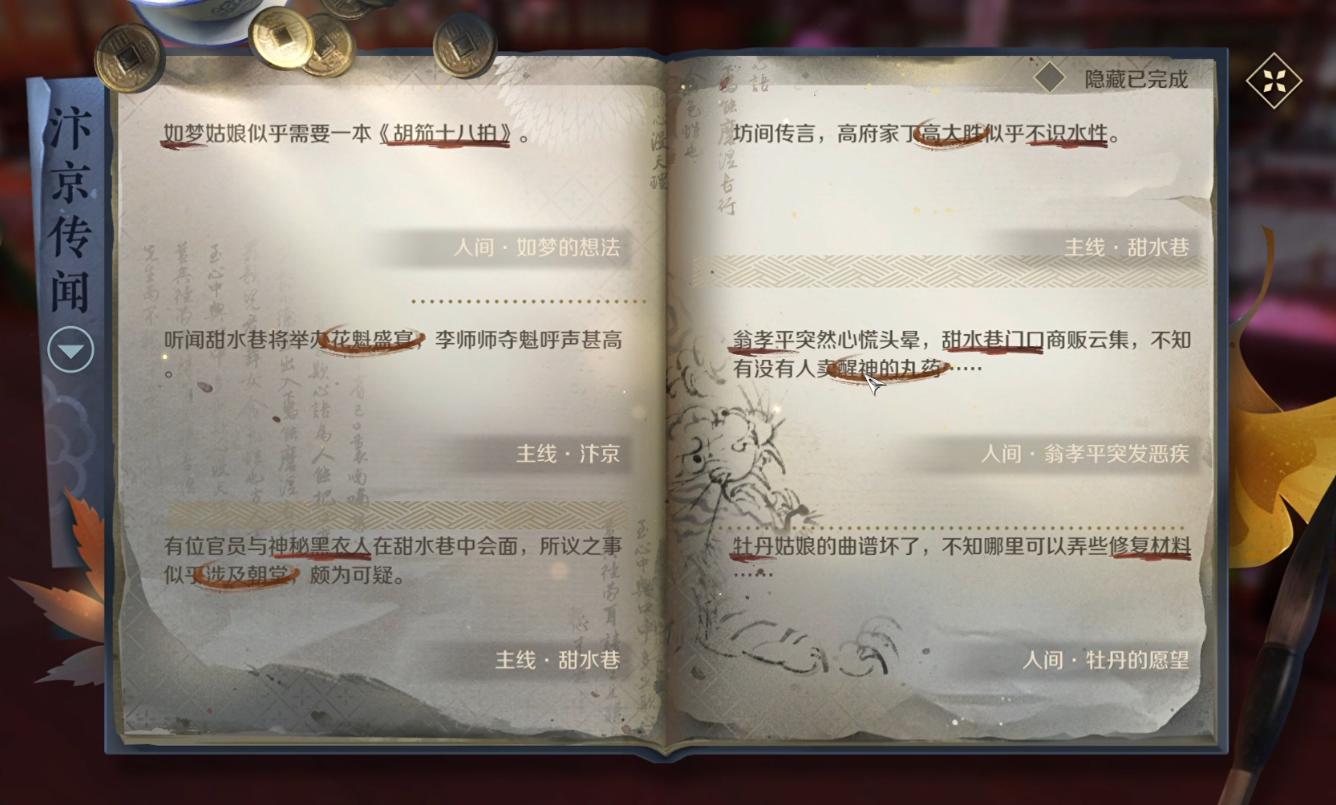 汴京传闻
如梦姑娘似乎需要一本《胡笳十八拍》。
人间·如梦的想法
听闻甜水巷将举办花魁盛宴，李师师夺魁呼声甚高
。
主线·汴京
有位官员与神秘黑衣人在甜水巷中会面，所议之事
似乎涉及朝堂，颇为可疑。
主线·甜水巷
隐藏已完成
坊间传言，高府家丁高大胜似乎不识水性。
主线·甜水巷
翁孝平突然心慌头晕，甜水巷门口商贩云集，不知
有没有人卖醒神的丸药……
人间·翁孝平突发恶疾
牡丹姑娘的曲谱坏了，不知哪里可以弄些修复材料
……
人间·牡丹的愿望